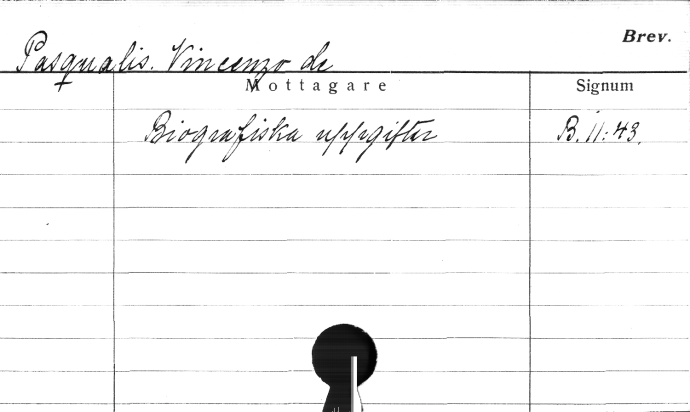 Brev.
Pasqualis. Vincenzo de
Mottagare Signum
Biografiska uppgifter B. 11:43.